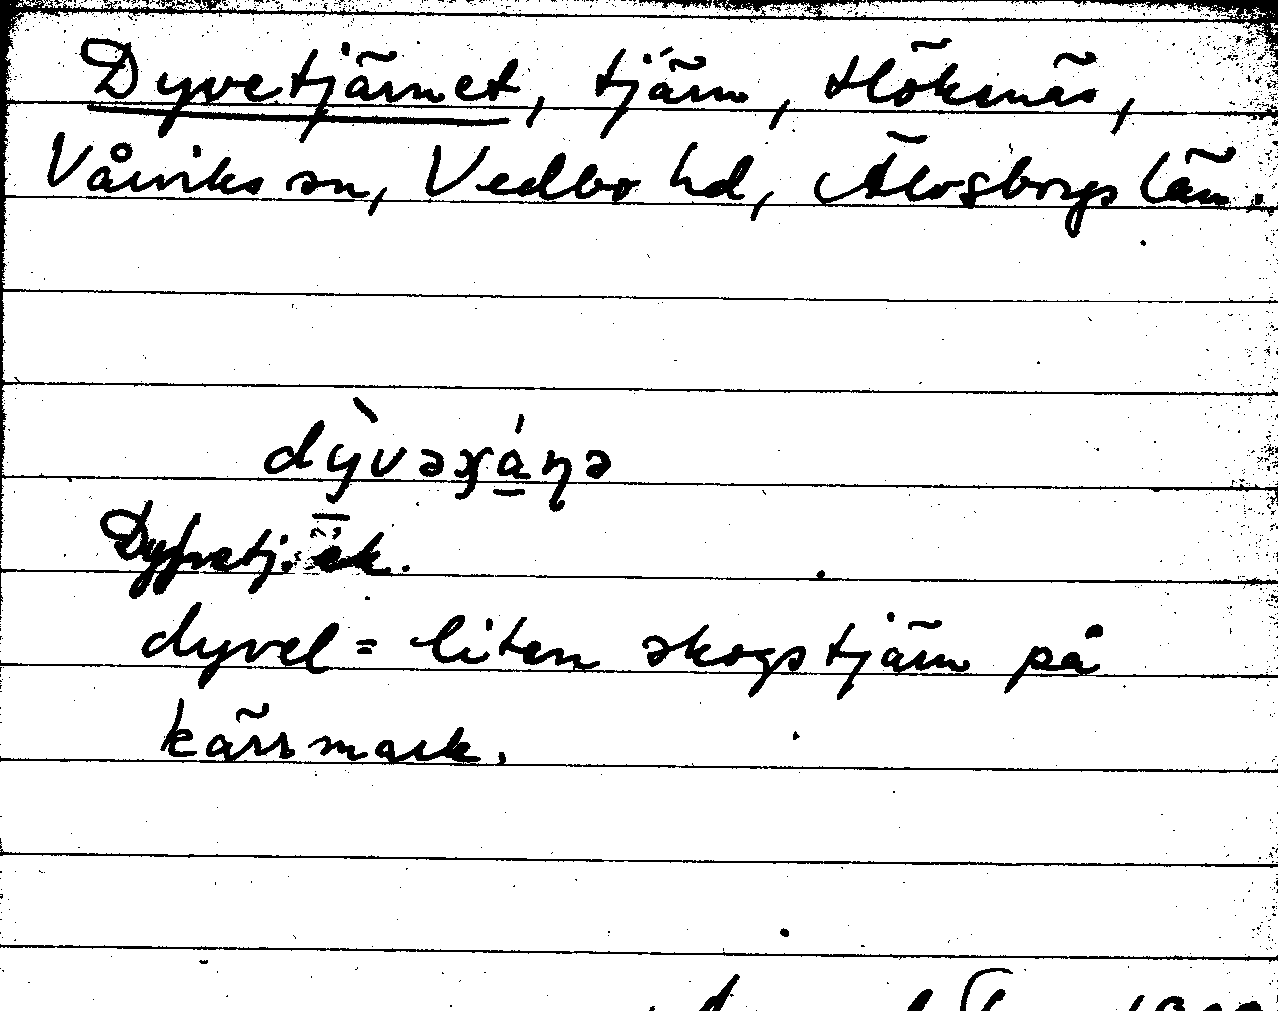 Dyvetjärnet, tjärn, Höksnäs,
Vårviks sn, Vedbo hd, Älvsborgs län.
Dyfvetj. ek.
dyvel = liten skogstjärn på
kärrmark.